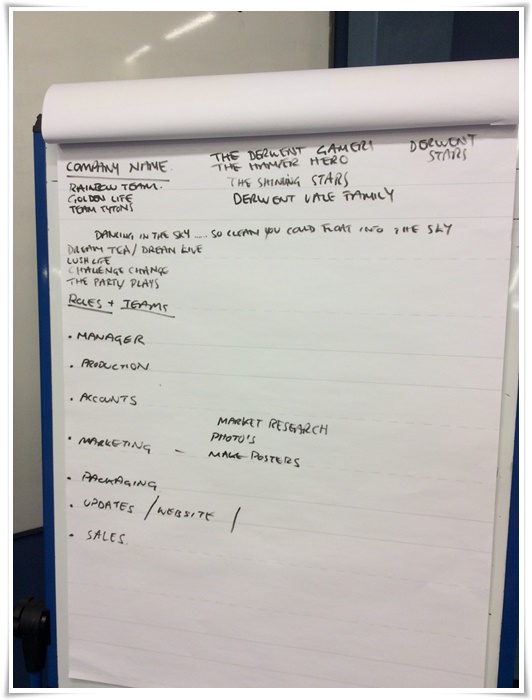 COMPANY NAME.
THE DERWENT GAMERS
THE HAMPER HERO
DERWENT
STARS
RAINBOW TEAM.
GOLDEN LIFE
TEAM TYTONS
THE SHINING STARS
DERWENT VALE FAMILY
DANCING IN THE SKY .... SO CLEAN YOU COULD FLOAT INTO THE SKY
DREAM TEA / DREAM LIVE
LUSH LIFE
CHALLENGE CHANGE
THE PARTY PLAYS
ROLES + TEAMS
• MANAGER
• PRODUCTION
• ACCOUNTS
MARKET RESEARCH
PHOTO'S
• MARKETING - MAKE POSTERS
• PACKAGING
• UPDATES / WEBSITE /
• SALES.